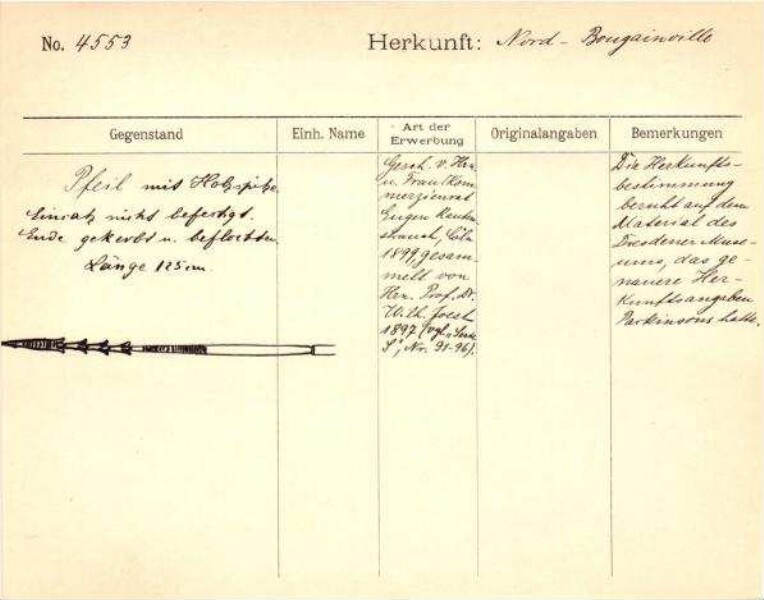 No. 4553
Herkunft: Nord - Bougainville
Gegenstand
Einh. Name
Art der
Erwerbung
Originalangaben
Bemerkungen
Pfeil mit Holzspitze
Einsatz nicht befestigt.
Ende gekerbt u. beflochten
Länge 125 cm.
Gesch. v. Hrn.
u. Frau Kom
merzienrat
Eugen Rauten
strauch, Cöln
1899, gesam-
melt von
Hrn. Prof. Dr.
Wilh. Joest
1897 (vgl.
S", Nr. 91-96).
Die Herkunfts-
bestimmung
beruht auf dem
Material des
Dresdener Muse-
ums, das ge-
nauere Her-
kunftsangaben
Parkinsons hatte.